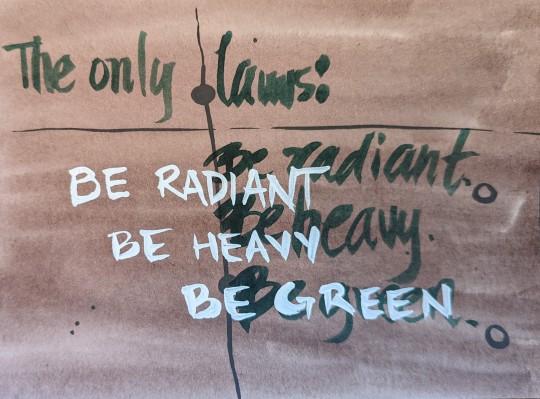 The only laws:
Be radiant.
BE RADIANT
Be heavy.
BE HEAVY
Be green.
BE GREEN